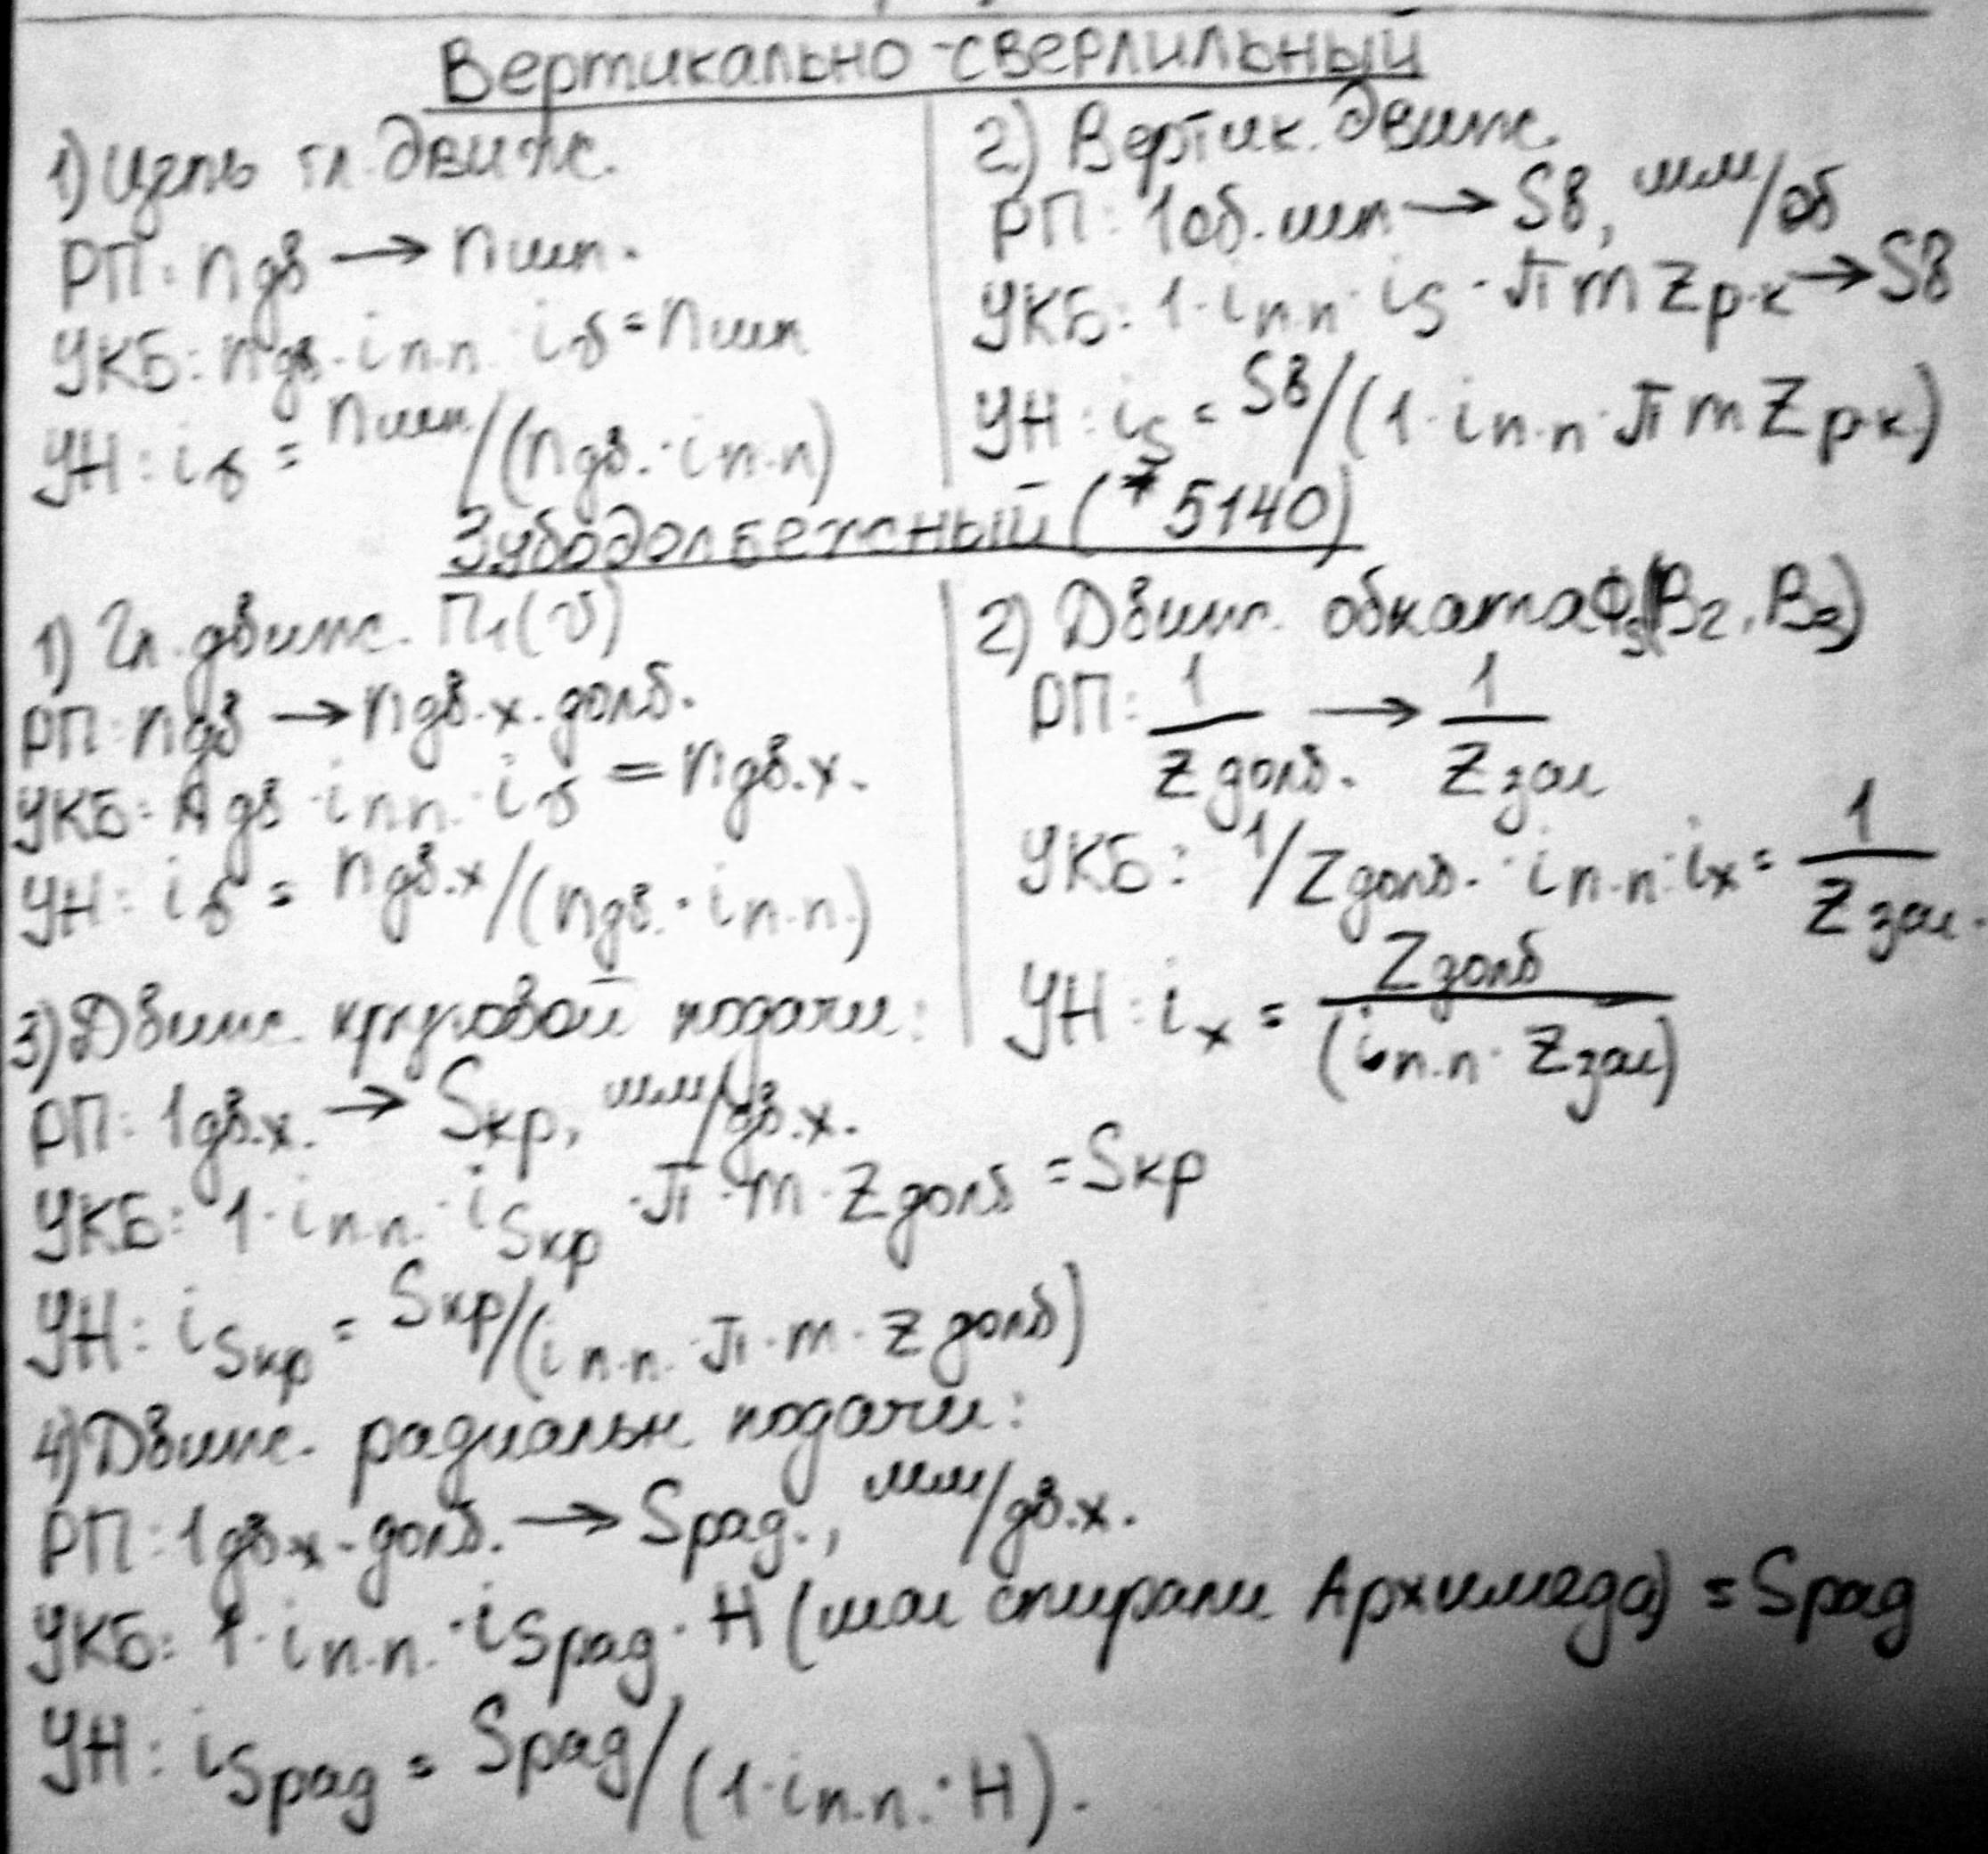 Вертикально-сверлильный
1) Цепь гл. движ.
РП: nдв → nшп.
УКБ: nдв · iп.п. iv = nшп
УН: iv = nшп/(nдв. · iп.п)
2) Вертик. движ.
РП: 1об. шп → Sв, мм/об
УКБ: 1 · iп.п · is · πmZр.к → Sв
УН: is = Sв/(1 · iп.п · πmZр.к)
Зубодолбежный (* 5140)
1) Гл. движ. П1(v)
РП: nдв → nдв.х. долб.
УКБ: nдв · iп.п. · iv = nдв.х.
УН: iv = nдв.х/(nдв. · iп.п.)
2) Движ. обката Фs(В2, В3)
РП: 1/Zдолб. → 1/Zзаг
УКБ: 1/Zдолб. · iп.п · ix = 1/Zзаг.
УН: ix = Zдолб/(iп.п · Zзаг)
3) Движ. круговой подачи:
РП: 1дв.х. → Sкр, мм/дв.х.
УКБ: 1 · iп.п. · iSкр · π · m · Zдолб = Sкр
УН: iSкр = Sкр/(iп.п. · π · m · Zдолб)
4) Движ. радиальн подачи:
РП: 1дв.х. долб. → Sрад., мм/дв.х.
УКБ: 1 · iп.п. · iSрад · H (шаг спирали Архимеда) = Sрад
УН: iSрад = Sрад/(1 · iп.п. · H).